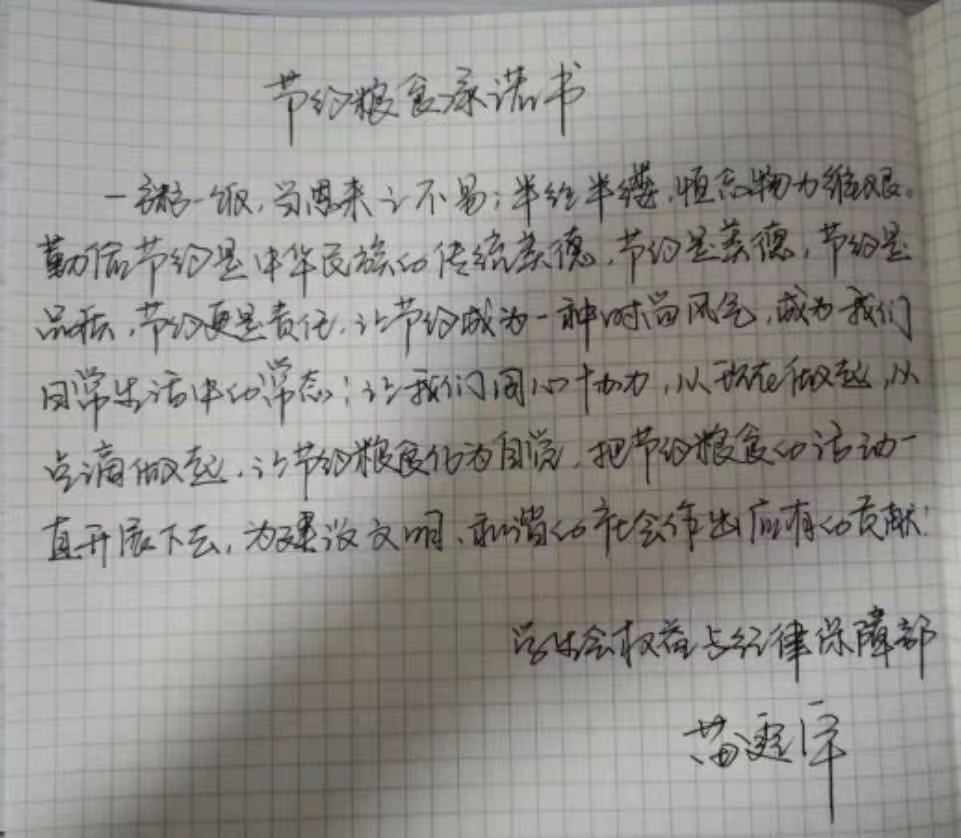 节约粮食承诺书
一粥一饭,当思来之不易;半丝半缕,恒念物力维艰。
勤俭节约是中华民族的传统美德,节约是美德,节约是
品质,节约更是责任,让节约成为一种时尚风气,成为我们
日常生活中的常态;让我们同心协力,从现在做起,从
点滴做起,让节约粮食化为自觉,把节约粮食的活动一
直开展下去,为建设文明、和谐的社会作出应有的贡献!
学生会权益与纪律保障部
苗